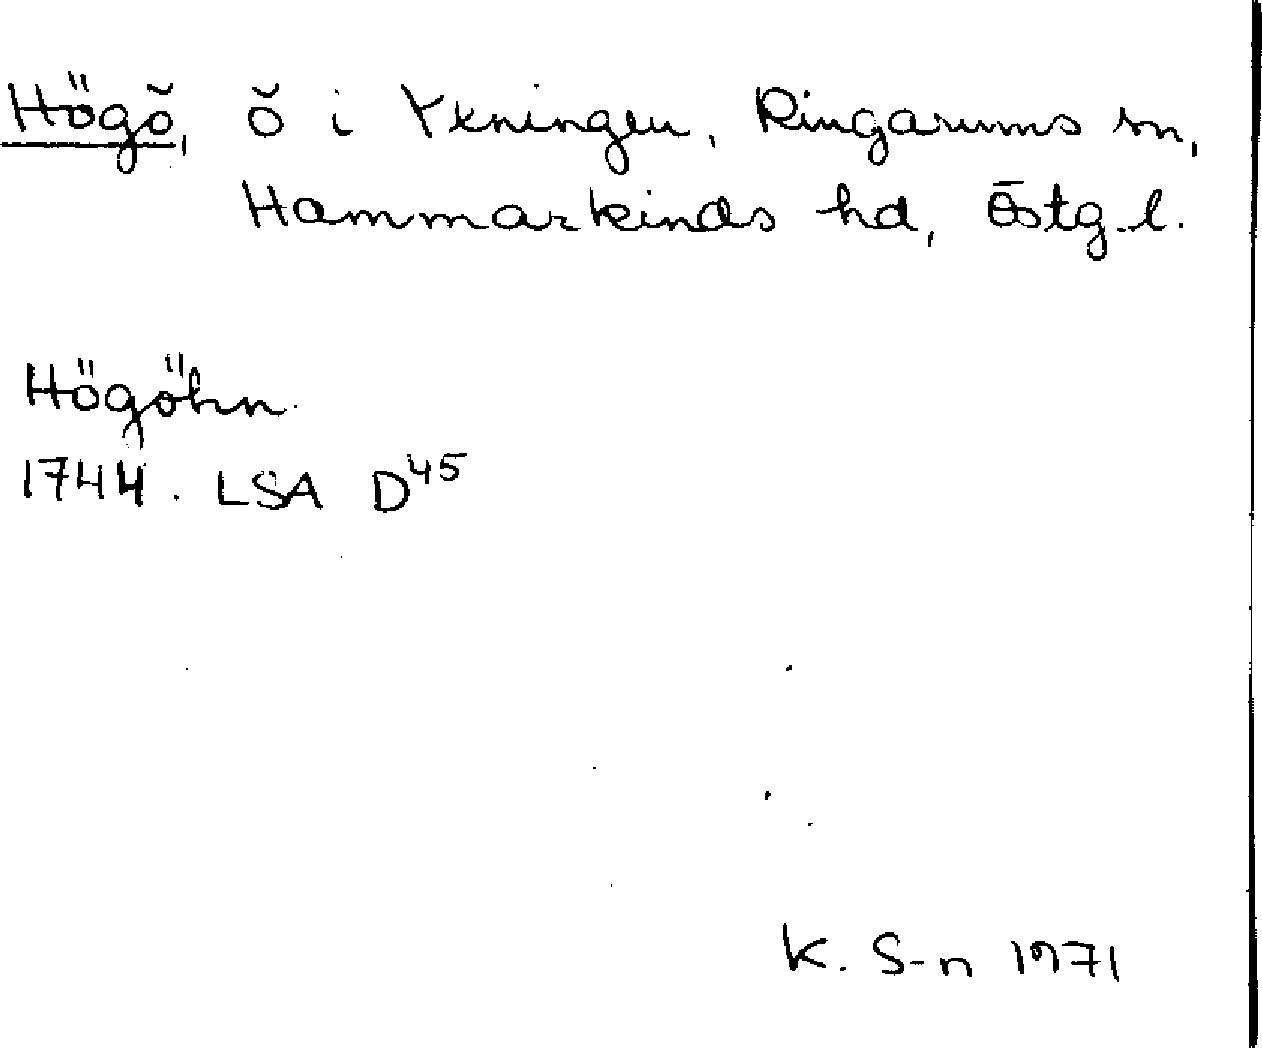 Högö, ö i Yxningen, Ringarums sn,
Hammarkinds hd, Östg. l.
Högöhn.
1744. LSA D45
K. S-n 1971